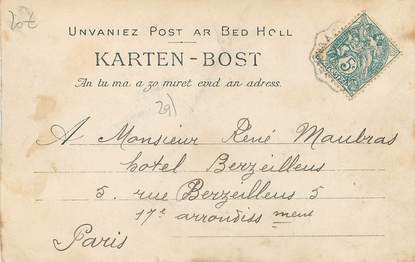 Unvaniez Post ar Bed Holl
KARTEN-BOST
An tu ma a zo miret evid an adress.
291
A Monsieur René Maubras
hotel Berzeillens
5. rue Berzeillens 5
17e arrondissmens
Paris